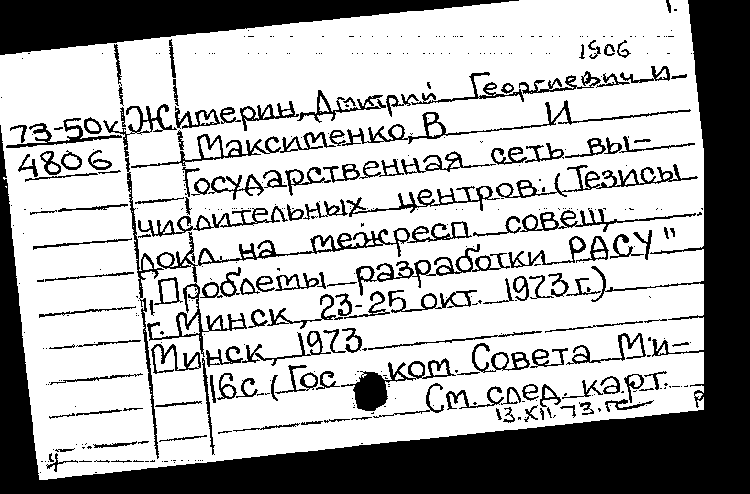 1.
1906
73-50к Жимерин, Дмитрий Георгиевич и
4806 Максименко, В И
Государственная сеть вы-
числительных центров. (Тезисы
докл. на межресп. совещ.
"Проблемы разработки РАСУ"
г. Минск, 23-25 окт. 1973 г.).
Минск, 1973
16с (Гос ком. Совета Ми-
См. след. карт.
13.XII.73.